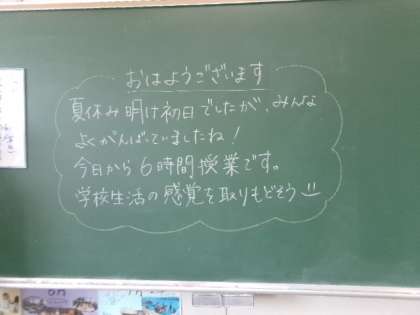 おはようございます
夏休み明け初日でしたが、みんな
よくがんばっていましたね！
今日から6時間授業です。
学校生活の感覚を取りもどそう